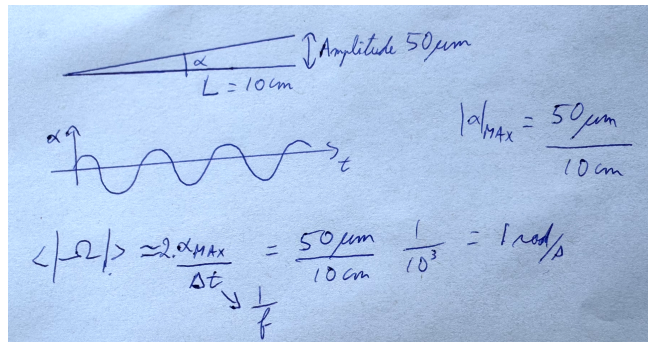 Amplitude 50 μm
α
L = 10 cm
|α|MAX = 50 μm / 10 cm
α
t
<|Ω|> ≃ 2.αMAX / Δt = 50 μm / 10 cm 1 / 10³ = 1 rad/s
1 / f